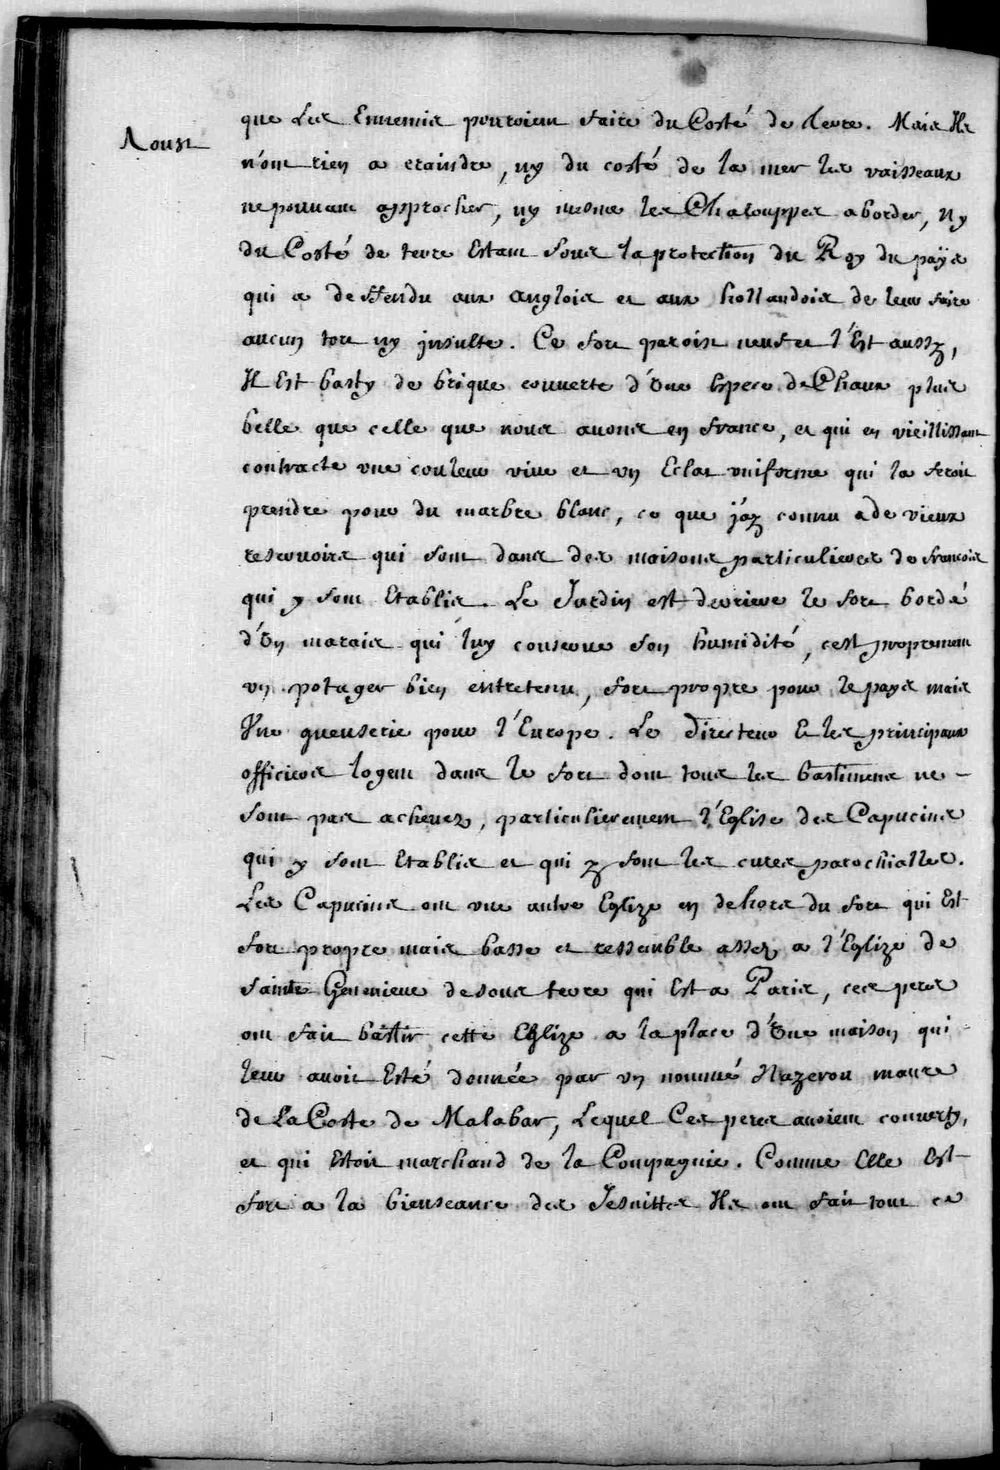 Aoust
que Les Ennemis pouroient faire du Costé de terre. Mais Ils
n'ont rien a craindre, ny du costé de la mer les vaisseaux
ne pouvant approcher, ny mesme les Chalouppes aborder, ny
du Costé de terre Estant sous la protection du Roy du païs
qui a deffendu aux anglois et aux hollandois de leur faire
aucun tort ny jnsulte. Ce fort paroist neuf et l'Est aussy,
Il Est basty de brique couverte d'Une Espece de Chaux plus
belle que celle que nous avons en france, et qui en vieillissant
contracte une couleur vive et un Eclat uniforme qui la feroit
prendre pour du marbre blanc, ce que j'ay connu a de vieux
reservoirs qui sont dans des maisons particulieres de francois
qui y sont Etablis. Le Jardin est derriere le fort bordé
d'Un marais qui luy conserve son humidité, cest proprement
un potager bien entretenu, fort propre pour le pays mais
Une gueuserie pour l'Europe. Le Directeur & les principaux
officiers logent dans le fort dont tous les bastiments ne
sont pas achevez, particulierement l'Eglise des Capucins
qui y sont Etablis et qui y font les cures parochialles.
Les Capucins ont une autre Eglize en dehors du fort qui Est
fort propre mais basse et ressemble assez a l'Eglize de
Sainte Genevieve desous terre qui Est a Paris, ces peres
ont fait bâtir cette Eglize a la place d'Une maison qui
leur avoit Esté donnée par un nommé Nazeron maure
de La Coste de Malabar, Lequel Ces peres avoient converty,
et qui Estoit marchand de la Compagnie. Comme Elle Est
fort a la bienseance des Jesuittes Ils ont fait tout ce